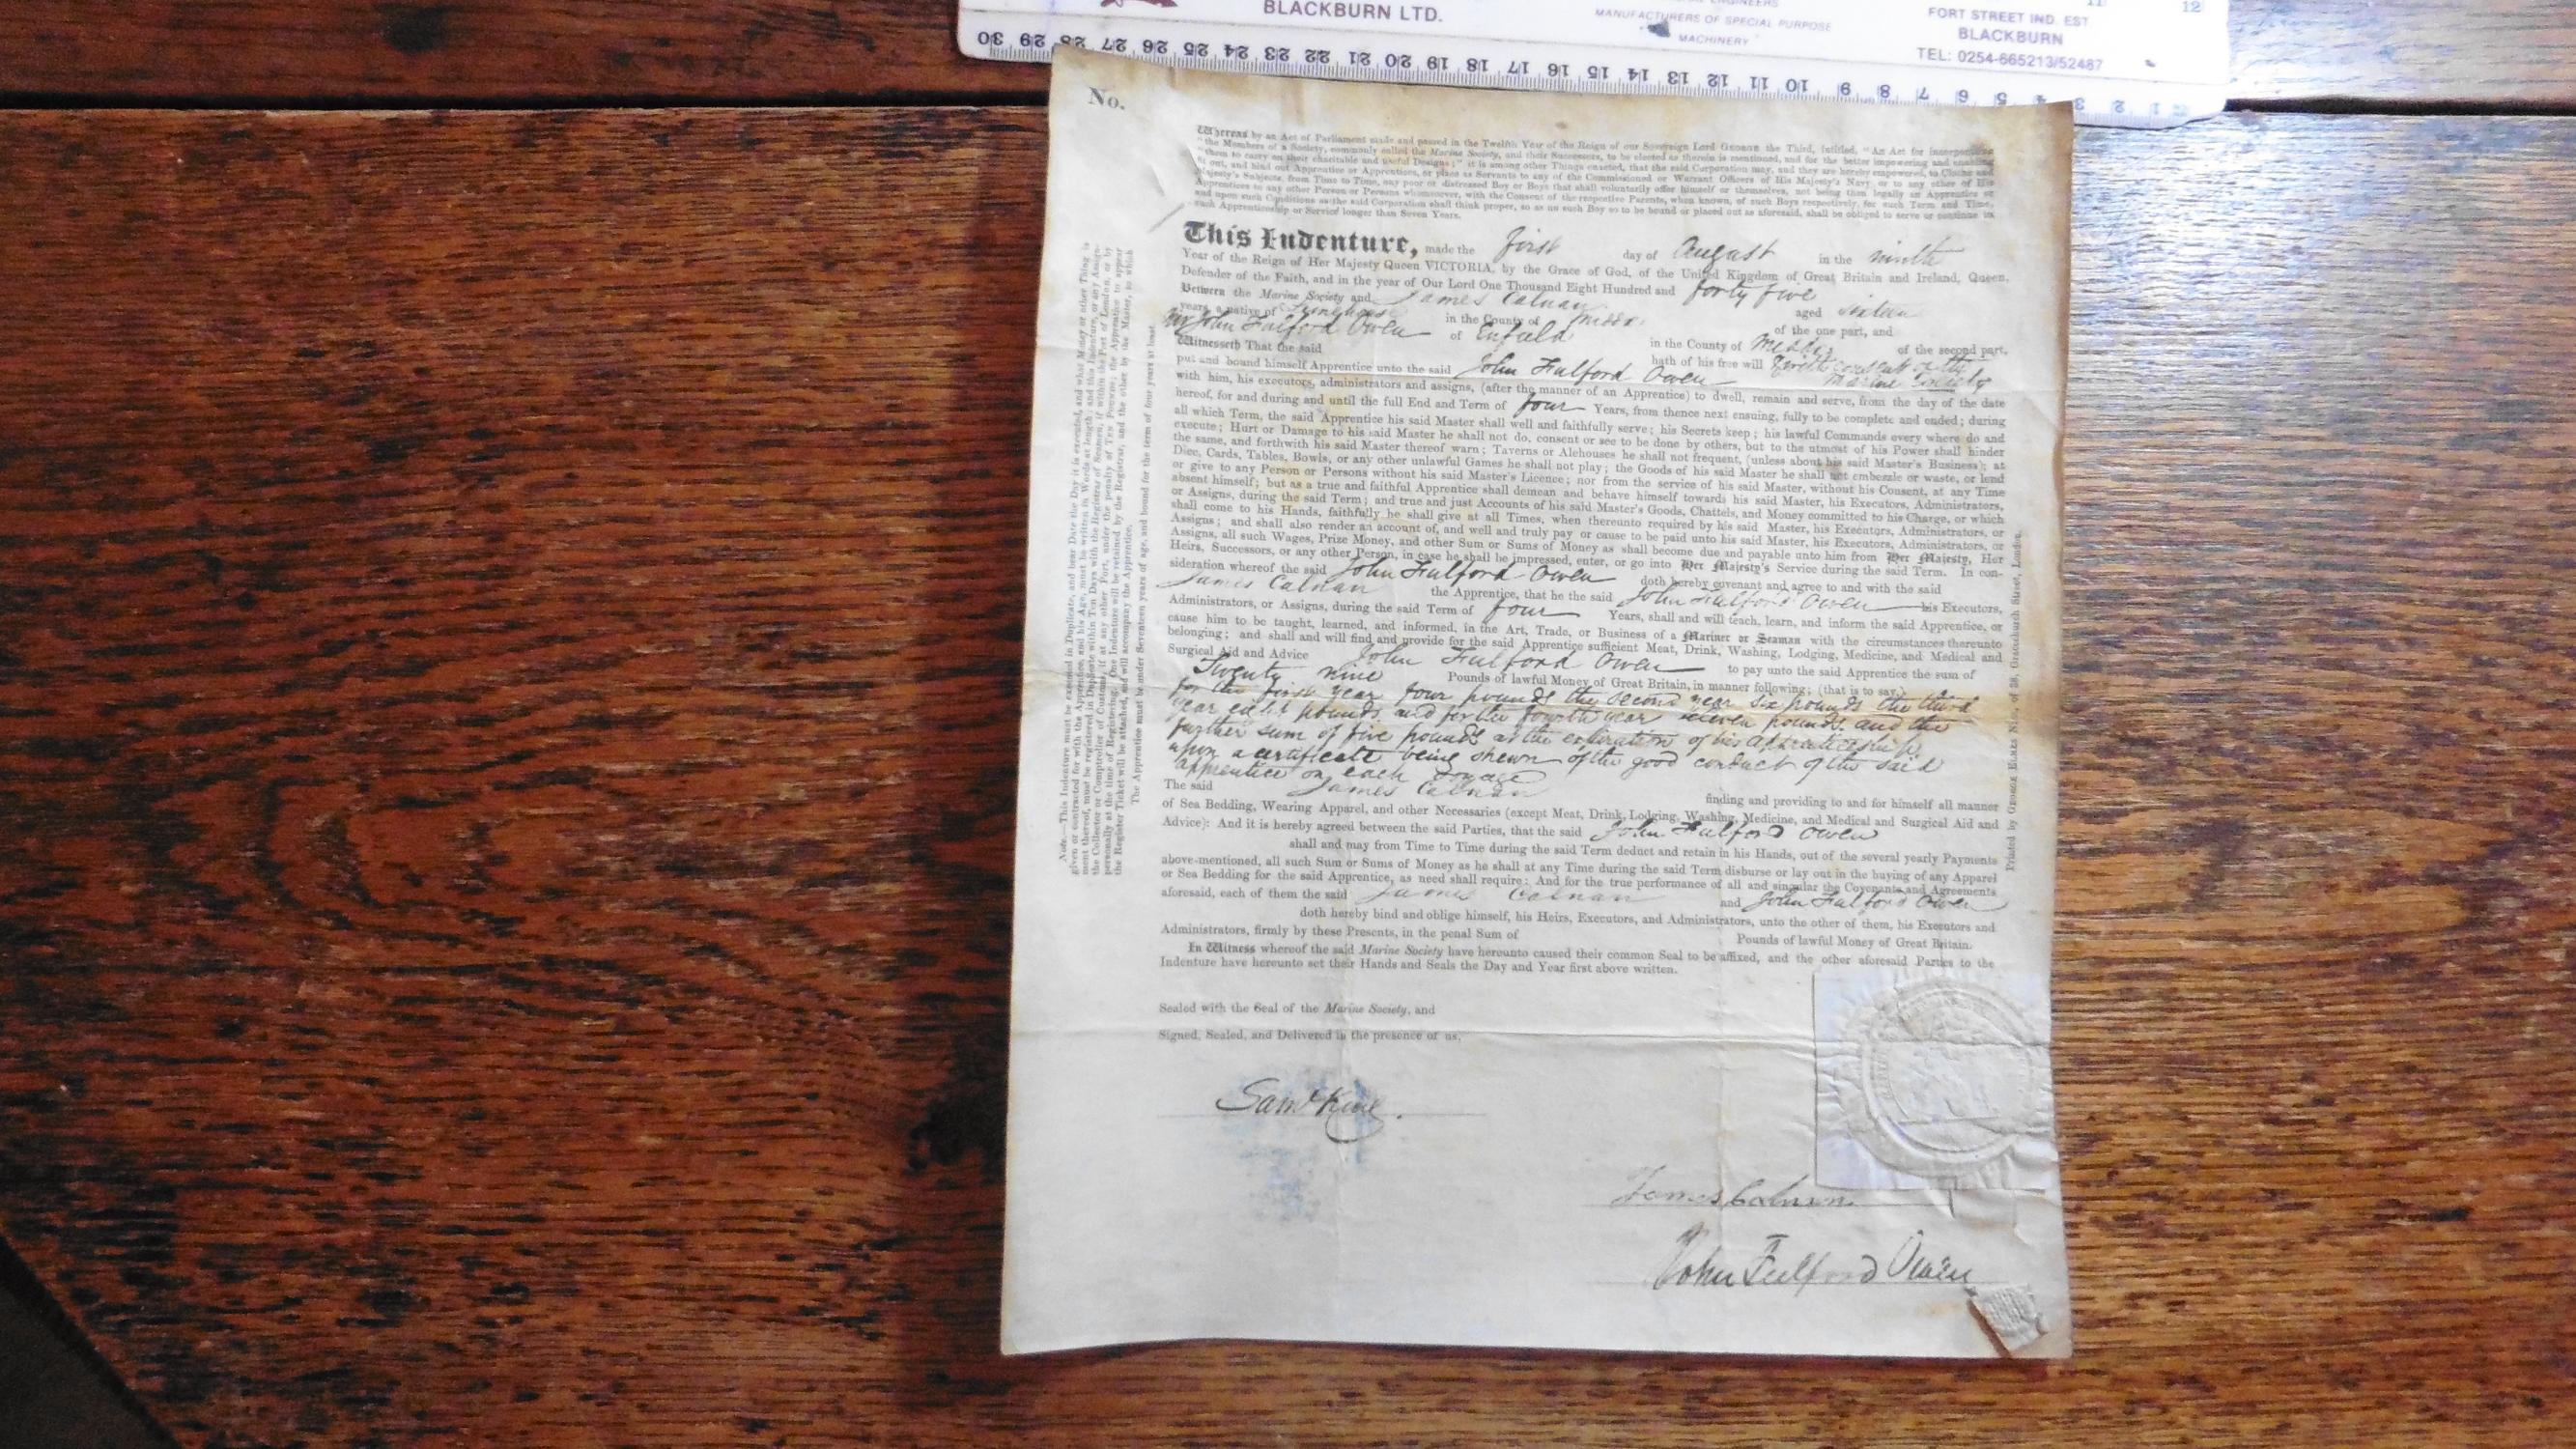 BLACKBURN LTD.
ENGINEERS
MANUFACTURERS OF SPECIAL PURPOSE
MACHINERY
FORT STREET IND. EST
BLACKBURN
TEL: 0254-665213/52487
11 12
30 29 28 27 26 25 24 23 22 21 20 19 18 17 16 15 14 13 12 11 10 9 8 7 6 5 4 3 2 1
No.
Whereas by an Act of Parliament made and passed in the Twelfth Year of the Reign of our Sovereign Lord GEORGE the Third, intitled, "An Act for incorporating
"the Members of a Society, commonly called the Marine Society, and their Successors, to be elected as therein is mentioned, and for the better empowering and enabling
"them to carry on their charitable and useful Designs;" it is among other Things enacted, that the said Corporation may, and they are hereby empowered, to Clothe and
fit out, and bind out Apprentice or Apprentices, or place as Servants to any of the Commissioned or Warrant Officers of His Majesty's Navy or to any other of His
Majesty's Subjects, from Time to Time, any poor or distressed Boy or Boys that shall voluntarily offer himself or themselves, not being then legally or Apprentice or
Apprentices to any other Person or Persons whomsoever, with the Consent of the respective Parents, when known, of such Boys respectively, for such Term and Time,
and upon such Conditions as the said Corporation shall think proper, so as no such Boy so to be bound or placed out as aforesaid, shall be obliged to serve or continue in
such Apprenticeship or Service longer than Seven Years.
This Indenture, made the first day of August in the ninth
Year of the Reign of Her Majesty Queen VICTORIA, by the Grace of God, of the United Kingdom of Great Britain and Ireland, Queen,
Defender of the Faith, and in the year of Our Lord One Thousand Eight Hundred and forty five
Between the Marine Society and James Calnan aged sixteen
years, a native of Limehouse in the County of Middx. of the one part, and
Mr John Fulford Owen of Enfield in the County of Middx. of the second part,
Witnesseth That the said hath of his free will & with consent of the Marine Society
put and bound himself Apprentice unto the said John Fulford Owen
with him, his executors, administrators and assigns, (after the manner of an Apprentice) to dwell, remain and serve, from the day of the date
hereof, for and during and until the full End and Term of four Years, from thence next ensuing, fully to be complete and ended; during
all which Term, the said Apprentice his said Master shall well and faithfully serve; his Secrets keep; his lawful Commands every where do and
execute; Hurt or Damage to his said Master he shall not do, consent or see to be done by others, but to the utmost of his Power shall hinder
the same, and forthwith his said Master thereof warn; Taverns or Alehouses he shall not frequent, (unless about his said Master's Business); at
Dice, Cards, Tables, Bowls, or any other unlawful Games he shall not play; the Goods of his said Master he shall not embezzle or waste, or lend
or give to any Person or Persons without his said Master's Licence; nor from the service of his said Master, without his Consent, at any Time
absent himself; but as a true and faithful Apprentice shall demean and behave himself towards his said Master, his Executors, Administrators,
or Assigns, during the said Term; and true and just Accounts of his said Master's Goods, Chattels, and Money committed to his Charge, or which
shall come to his Hands, faithfully he shall give at all Times, when thereunto required by his said Master, his Executors, Administrators, or
Assigns; and shall also render an account of, and well and truly pay or cause to be paid unto his said Master, his Executors, Administrators, or
Assigns, all such Wages, Prize Money, and other Sum or Sums of Money as shall become due and payable unto him from Her Majesty, Her
Heirs, Successors, or any other Person, in case he shall be impressed, enter, or go into Her Majesty's Service during the said Term. In con-
sideration whereof the said John Fulford Owen doth hereby covenant and agree to and with the said
James Calnan the Apprentice, that he the said John Fulford Owen his Executors,
Administrators, or Assigns, during the said Term of four Years, shall and will teach, learn, and inform the said Apprentice, or
cause him to be taught, learned, and informed, in the Art, Trade, or Business of a Mariner or Seaman with the circumstances thereunto
belonging; and shall and will find and provide for the said Apprentice sufficient Meat, Drink, Washing, Lodging, Medicine, and Medical and
Surgical Aid and Advice John Fulford Owen to pay unto the said Apprentice the sum of
Twenty nine Pounds of lawful Money of Great Britain, in manner following; (that is to say,)
for the first year four pounds the second year six pounds the third
year eight pounds and for the fourth year eleven pounds and the
further sum of five pounds at the expiration of his apprenticeship
upon a certificate being shewn of the good conduct of the said
apprentice on each voyage
The said James Calnan finding and providing to and for himself all manner
of Sea Bedding, Wearing Apparel, and other Necessaries (except Meat, Drink, Lodging, Washing, Medicine, and Medical and Surgical Aid and
Advice): And it is hereby agreed between the said Parties, that the said John Fulford Owen
shall and may from Time to Time during the said Term deduct and retain in his Hands, out of the several yearly Payments
above-mentioned, all such Sum or Sums of Money as he shall at any Time during the said Term disburse or lay out in the buying of any Apparel
or Sea Bedding for the said Apprentice, as need shall require: And for the true performance of all and singular the Covenants and Agreements
aforesaid, each of them the said James Calnan and John Fulford Owen
doth hereby bind and oblige himself, his Heirs, Executors, and Administrators, unto the other of them, his Executors and
Administrators, firmly by these Presents, in the penal Sum of Pounds of lawful Money of Great Britain.
In Witness whereof the said Marine Society have hereunto caused their common Seal to be affixed, and the other aforesaid Parties to the
Indenture have hereunto set their Hands and Seals the Day and Year first above written.
Sealed with the Seal of the Marine Society, and
Signed, Sealed, and Delivered in the presence of us,
Saml King.
James Calnan.
John Fulford Owen
Note.—This Indenture must be executed in Duplicate, and bear Date the Day it is executed, and what Money or other Thing is
given or contracted for with the Apprentice, and his Age, must be written in Words at length; and this Indenture, or any Assign-
ment thereof, must be registered in Duplicate within Ten Days with the Registrar of Seamen, if within the Port of London, or by
the Collector or Comptroller of Customs, if at any other Port, under the penalty of TEN POUNDS; the Apprentice to appear
personally at the time of Registering. One Indenture will be retained by the Registrar, and the other by the Master, to which
the Register Ticket will be attached, and will accompany the Apprentice.
The Apprentice must be under Seventeen years of age, and bound for the term of four years at least.
Printed by GEORGE EIMER, No. of 38, Gracechurch Street, London.